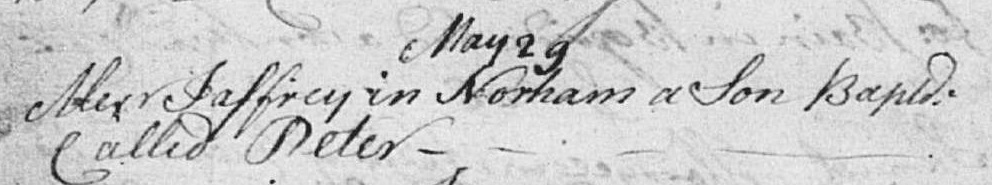 May 29
Alexr Jaffrey in Norham a Son Baptd.
Called Peter